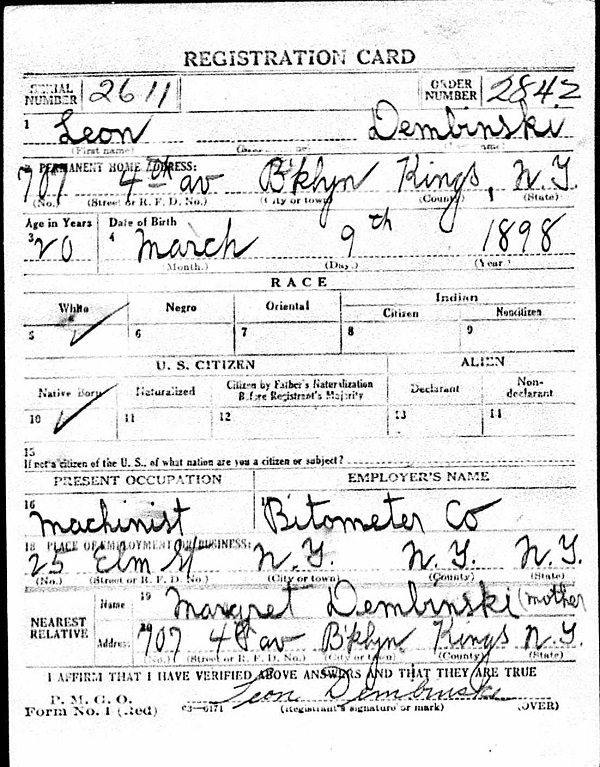 REGISTRATION CARD
SERIAL NUMBER 2611 ORDER NUMBER 2842
1 Leon Dembinski
(First name) name)
PERMANENT HOME ADDRESS:
707 4th av B'klyn Kings, N.Y.
(No.) (Street or R. F. D. No.) (City or town) (County) (State)
Age in Years Date of Birth
3 20 4 March 9th 1898
(Month.) (Day.) (Year.)
RACE
White Negro Oriental Indian
Citizen Noncitizen
5 ✓ 6 7 8 9
U. S. CITIZEN ALIEN
Native Born Naturalized Citizen by Father's Naturalization Before Registrant's Majority Declarant Non-declarant
10 ✓ 11 12 13 14
15
If not a citizen of the U. S., of what nation are you a citizen or subject?
PRESENT OCCUPATION EMPLOYER'S NAME
16 Machinist Bitometer Co
18 PLACE OF EMPLOYMENT OR BUSINESS:
25 Elm St N.Y. N.Y. N.Y.
(No.) (Street or R. F. D. No.) (City or town) (County) (State)
NEAREST RELATIVE Name 19 Margret Dembinski (mother
Address 20 707 4th av B'klyn Kings N.Y.
(No.) (Street or R. F. D. No.) (City or town) (County) (State)
I AFFIRM THAT I HAVE VERIFIED ABOVE ANSWERS AND THAT THEY ARE TRUE
P. M. G. O.
Form No. 1 (Red) 03—6171 Leon Dembinski
(Registrant's signature or mark) (OVER)